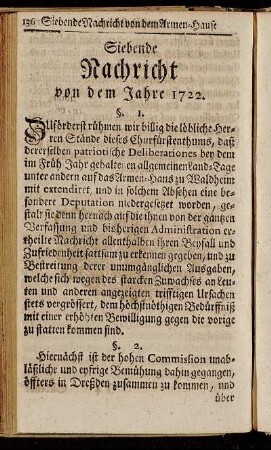 136 Siebende Nachricht von dem Armen-Hause
Siebende
Nachricht
von dem Jahre 1722.
§. 1.
Allförderst rühmen wir billig die löbliche Her-
ren Stände dieses Churfürstenthums, daß
dererselben patriotische Deliberationes bey dem
im Früh Jahr gehaltenen allgemeinen Land-Tage
unter andern auf das Armen-Haus zu Waldheim
mit extendiret, und in solchem Absehen eine be-
sondere Deputation niedergesetzet worden, ge-
stalt sie denn hernach auf die ihnen von der gantzen
Verfassung und bißherigen Administration er-
theilte Nachricht allenthalben ihren Beyfall und
Zufriedenheit sattsam zu erkennen gegeben, und zu
Bestreitung derer umumgänglichen Ausgaben,
welche sich wegen des starcken Zuwachses an Leu-
ten und anderen angezeigten trifftigen Ursachen
stets vergrössert, dem höchstnöthigen Bedürffniß
mit einer erhöhten Bewilligung gegen die vorige
zu statten kommen sind.
§. 2.
Hiernächst ist der hohen Commission unab-
läßliche und eyfrige Bemühung dahin gegangen,
öffters in Dreßden zusammen zu kommen, und
über